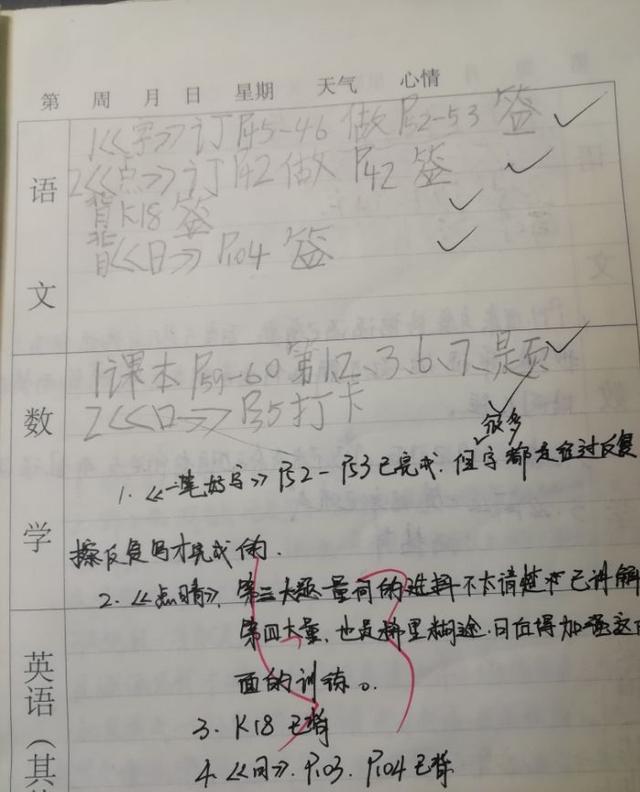 第 周 月 日 星期 天气 心情
语文
1《字》订P45-46 做P52-53 签
2《点》订P42做 P42 签
背K18 签
背《日》P104 签
数学
1课本P59-60第1、2、3、6、7、题
2《口》P35打卡
很多
1. 《一笔好字》P52-P53已完成. 但字都是经过反复
擦反复写才完成的.
2. 《点睛》, 第三大题 量词的 不太清楚 已讲解
第四大量, 也是糊里糊涂. 日后得加强这
面的训练。
3. K18 已背
4. 《日》. P103. P104已背
英语(其